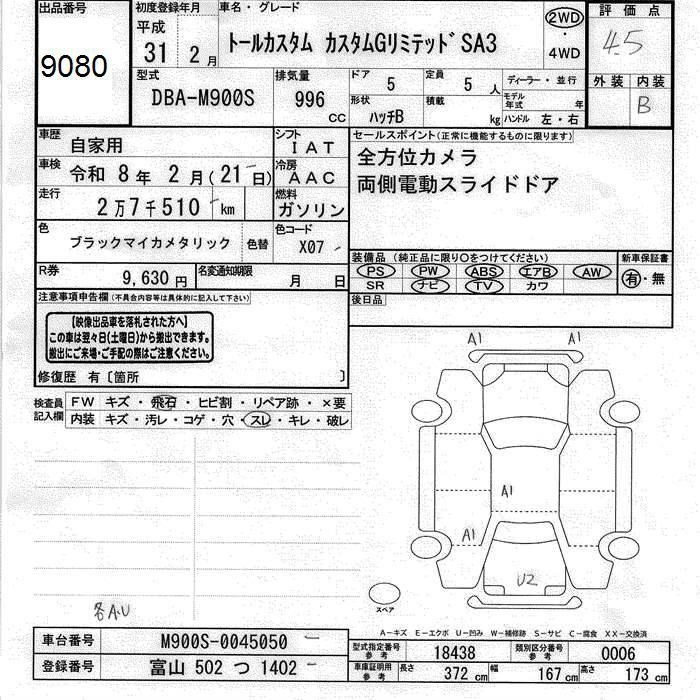 出品番号
9080
初度登録年月
平成
31 2月
車名・グレード
トールカスタム カスタムGリミテッド SA3
2WD
・
4WD
評価点
4.5
外装 内装
B
型式
DBA-M900S
排気量
996
cc
ドア
5
定員
5 人
形状
ハッチB
積載
kg
ディーラー・並行
モデル年式 年
ハンドル 左・右
車歴
自家用
シフト
IAT
車検
令和 8年 2月(21日)
冷房
AAC
走行
2万7千510 km
燃料
ガソリン
色
ブラックマイカメタリック
色替
色コード
X07
R券
9,630 円
名変通知期限
月 日
セールスポイント(正常に機能するものに限ります)
全方位カメラ
両側電動スライドドア
装備品(純正品に限り○をつけてください)
PS PW ABS エアB AW
SR ナビ TV カワ
新車保証書
有・無
後日品
注意事項申告欄(不具合内容等は具体的に記入して下さい)
【映像出品車を落札された方へ】
この車は翌々日(土曜日)から搬出できます。
搬出にご来場・ご手配の際はご注意ください。
修復歴 有〔箇所 〕
検査員記入欄
FW キズ・飛石・ヒビ割・リペア跡・×要
内装 キズ・汚レ・コゲ・穴・スレ・キレ・破レ
A1 A1
A1
A1
U2
各A.U
スペア
A−キズ E−エクボ U−凹み W−補修跡 S−サビ C−腐食 XX−交換済
車台番号
M900S-0045050
登録番号
富山 502 つ 1402
型式指定番号
参考
18438
類別区分番号
参考
0006
車庫証明用
参考
長さ 372 cm 幅 167 cm 高さ 173 cm